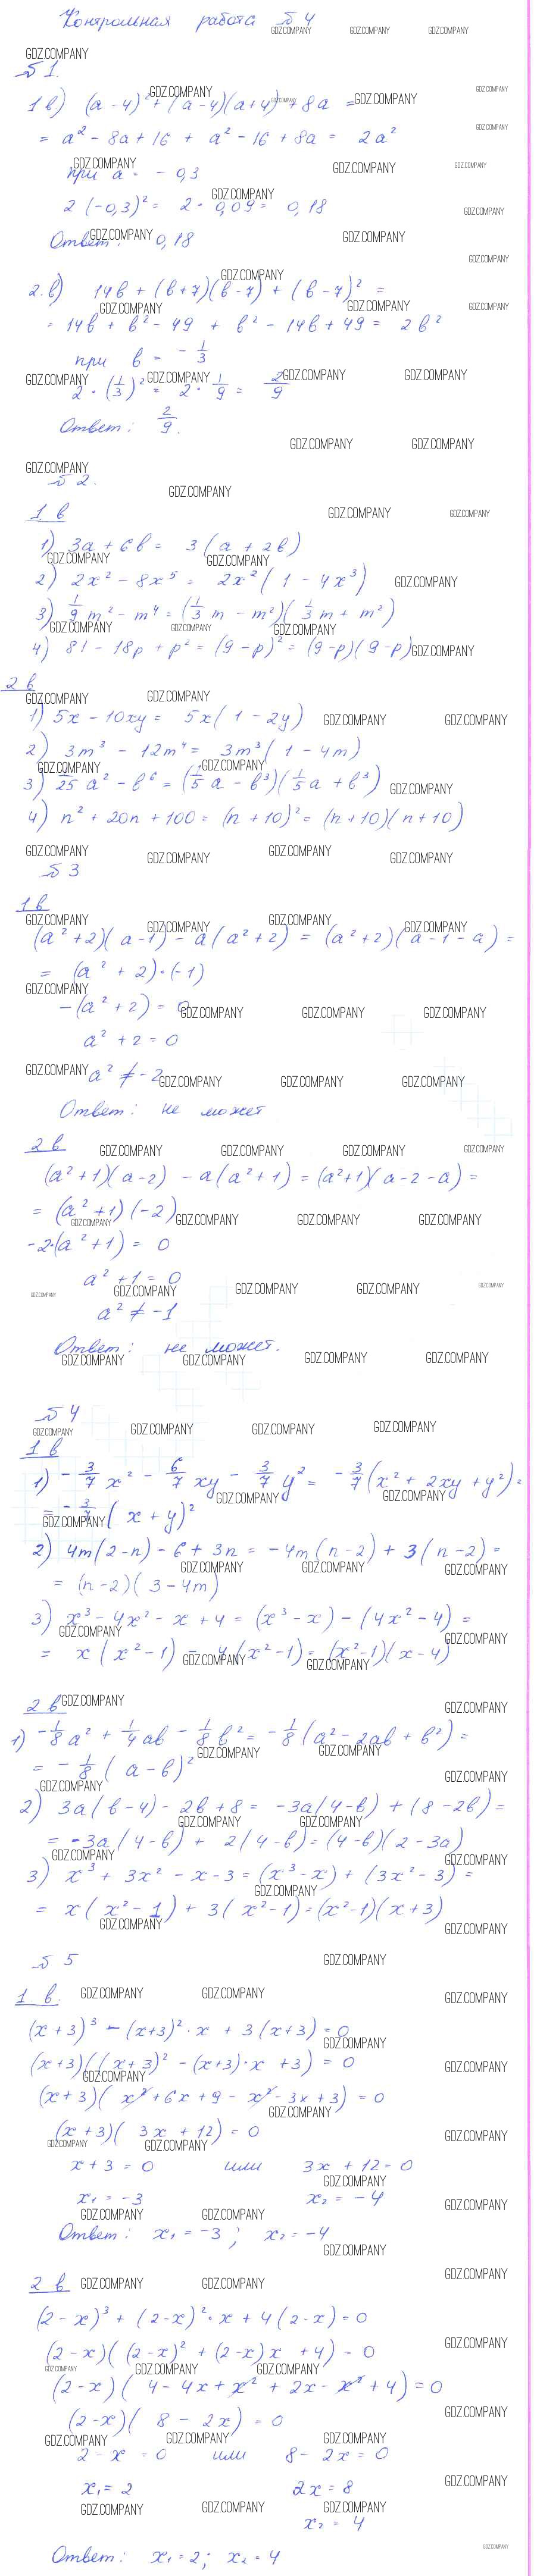 Контрольная работа № 4
№ 1.
1 в) (a - 4)² + (a - 4)(a + 4) + 8a =
= a² - 8a + 16 + a² - 16 + 8a = 2a²
при a = - 0,3
2 (-0,3)² = 2 · 0,09 = 0,18
Ответ: 0,18
2. в) 14в + (в + 7)(в - 7) + (в - 7)² =
= 14в + в² - 49 + в² - 14в + 49 = 2в²
при в = - 1/3
2 · (1/3)² = 2 · 1/9 = 2/9
Ответ: 2/9.
№ 2.
1 в
1) 3a + 6в = 3 (a + 2в)
2) 2x² - 8x⁵ = 2x² (1 - 4x³)
3) 1/9 m² - m⁴ = (1/3 m - m²)(1/3 m + m²)
4) 81 - 18p + p² = (9 - p)² = (9 - p)(9 - p)
2 в
1) 5x - 10xy = 5x (1 - 2y)
2) 3m³ - 12m⁴ = 3m³ (1 - 4m)
3) 1/25 a² - в⁶ = (1/5 a - в³)(1/5 a + в³)
4) n² + 20n + 100 = (n + 10)² = (n + 10)(n + 10)
№ 3
1 в
(a² + 2)(a - 1) - a (a² + 2) = (a² + 2)(a - 1 - a) =
= (a² + 2) · (-1)
- (a² + 2) = 0
a² + 2 = 0
a² ≠ - 2
Ответ: не может
2 в
(a² + 1)(a - 2) - a (a² + 1) = (a² + 1)(a - 2 - a) =
= (a² + 1) (-2)
-2 · (a² + 1) = 0
a² + 1 = 0
a² ≠ - 1
Ответ: не может.
№ 4
1 в
1) - 3/7 x² - 6/7 xy - 3/7 y² = - 3/7 (x² + 2xy + y²) =
= - 3/7 (x + y)²
2) 4m (2 - n) - 6 + 3n = - 4m (n - 2) + 3 (n - 2) =
= (n - 2)(3 - 4m)
3) x³ - 4x² - x + 4 = (x³ - x) - (4x² - 4) =
= x (x² - 1) - 4 (x² - 1) = (x² - 1)(x - 4)
2 в
1) - 1/8 a² + 1/4 aв - 1/8 в² = - 1/8 (a² - 2aв + в²) =
= - 1/8 (a - в)²
2) 3a (в - 4) - 2в + 8 = - 3a (4 - в) + (8 - 2в) =
= - 3a (4 - в) + 2 (4 - в) = (4 - в)(2 - 3a)
3) x³ + 3x² - x - 3 = (x³ - x) + (3x² - 3) =
= x (x² - 1) + 3 (x² - 1) = (x² - 1)(x + 3)
№ 5
1 в.
(x + 3)³ - (x + 3)² · x + 3 (x + 3) = 0
(x + 3)((x + 3)² - (x + 3) · x + 3) = 0
(x + 3)(x² + 6x + 9 - x² - 3x + 3) = 0
(x + 3)(3x + 12) = 0
x + 3 = 0 или 3x + 12 = 0
x₁ = - 3 x₂ = - 4
Ответ: x₁ = - 3 ; x₂ = - 4
2 в
(2 - x)³ + (2 - x)² · x + 4 (2 - x) = 0
(2 - x)((2 - x)² + (2 - x) x + 4) = 0
(2 - x)(4 - 4x + x² + 2x - x² + 4) = 0
(2 - x)(8 - 2x) = 0
2 - x = 0 или 8 - 2x = 0
x₁ = 2 2x = 8
x₂ = 4
Ответ: x₁ = 2 ; x₂ = 4
GDZ.COMPANY